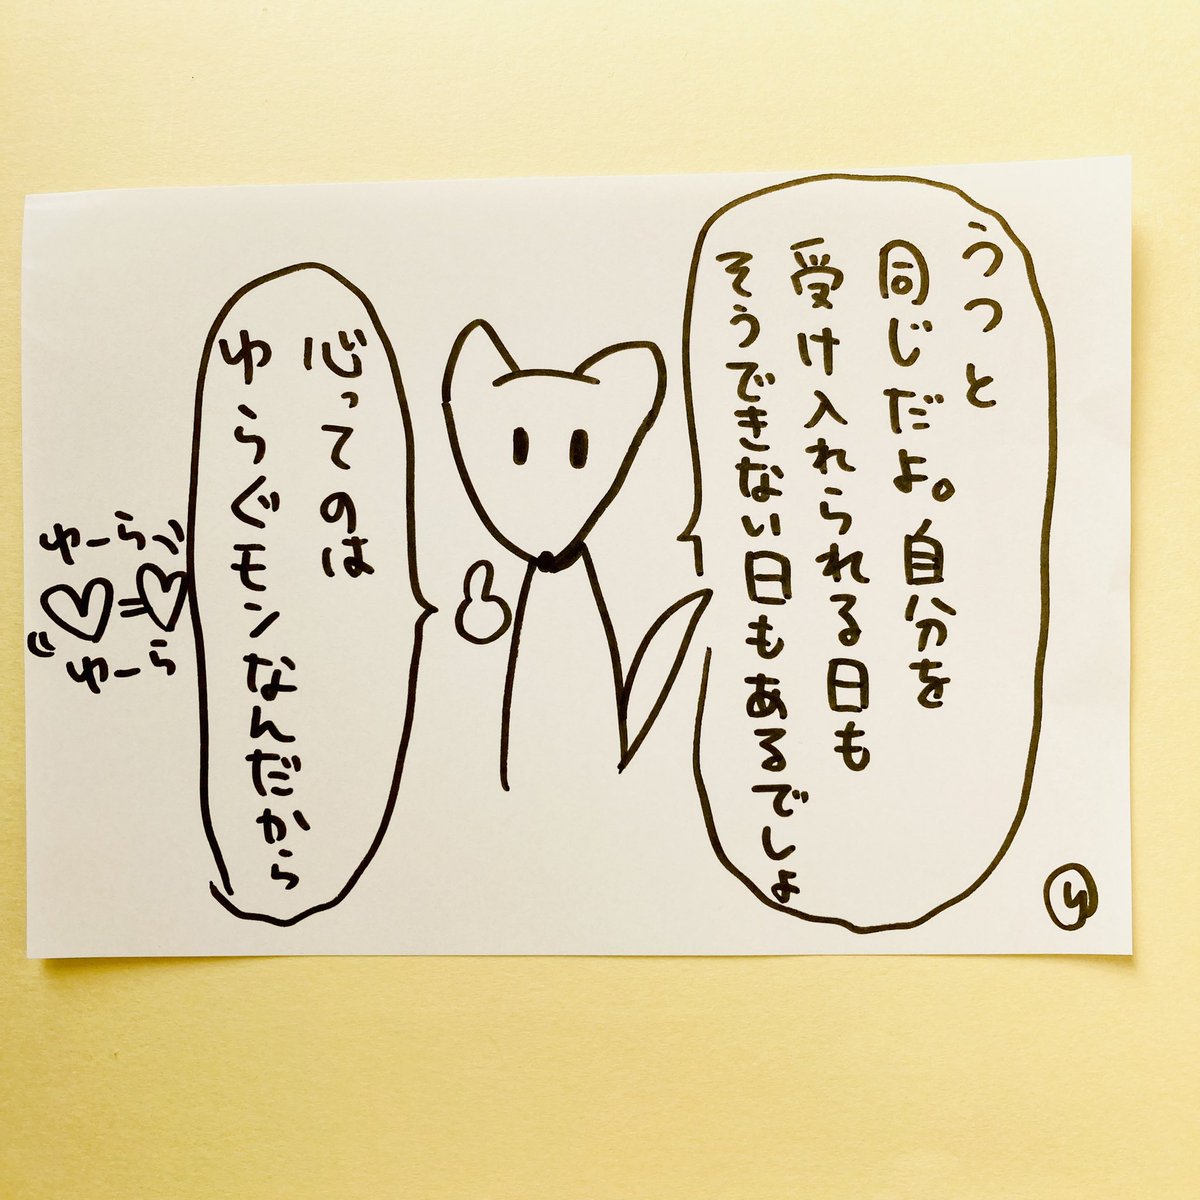 うつと
同じだよ。自分を
受け入れられる日も
そうできない日もあるでしょ
心ってのは
ゆらぐモンなんだから
ゆーら
ゆーら